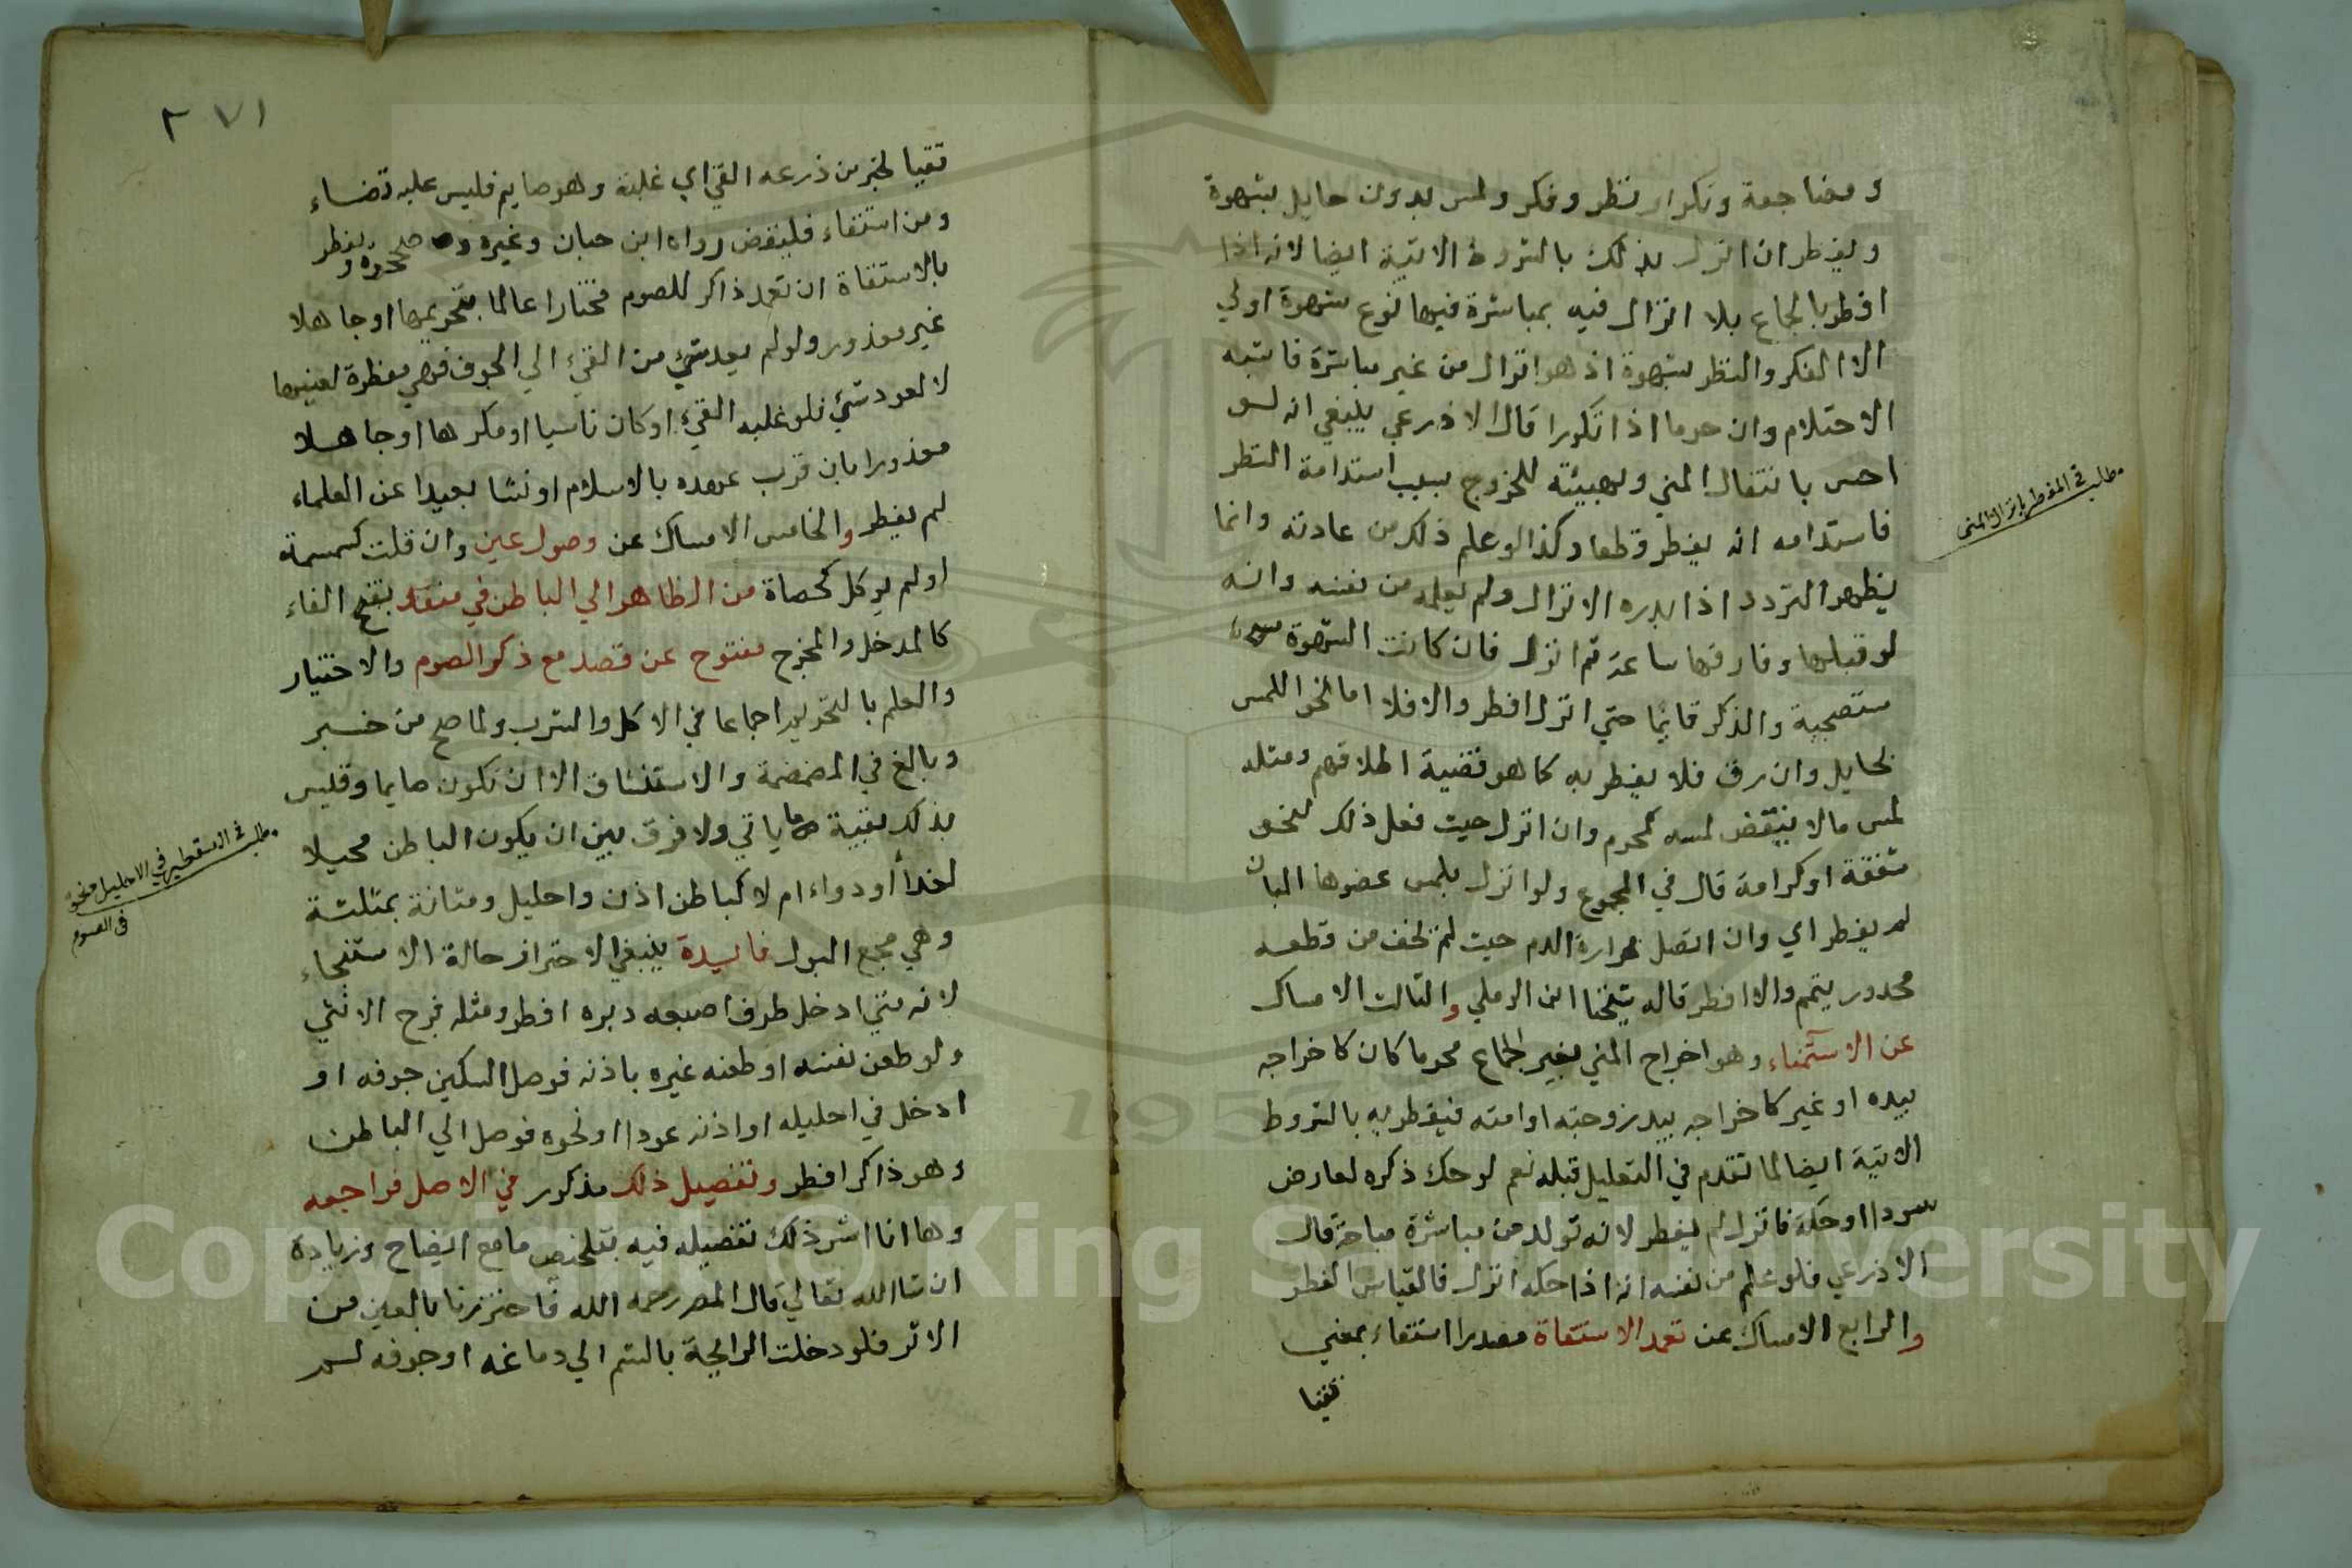 ومضاجعة وتكرار نظر وفكر ولمس بدون حايل بشهوة
ويفطر ان انزل بذلك بالشروط الاتية ايضا لانه اذا
افطر بالجماع بلا انزال فيه بمباشرة فيها نوع شهوة اولي
الا الفكر والنظر بشهوة اذ هو انزال من غير مباشرة فاشبه
الاحتلام وان حرما اذا تكررا قال الاذرعي ينبغي انه لو
احس بانتقال المني وتهييئه للخروج بسبب استدامة النظر
فاستدامه انه يفطر قطعا وكذا لو علم ذلك من عادته وانما
يظهر التردد اذا بدره الانزال ولم يعلمه من نفسه وانه
لو قبلها وفارقها ساعة ثم انزل فان كانت الشهوة
مستصحبة والذكر قايما حتي انزل افطر والا فلا اما نحو اللمس
بحايل وان رق فلا يفطر به كما هو قضية اطلاقهم ومثله
لمس ما لا ينتقض لمسه كمحرم وان انزل حيث فعل ذلك لنحو
شفقة او كرامة قال في المجموع ولو انزل بلمس عضوها المبان
لم يفطر اي وان اتصل بحرارة الدم حيث لم يخف من قطعه
محدور يتمم والا افطر قاله شيخنا ابن الرملي والثالث الامساك
عن الاستمناء وهو اخراج المني بغير الجماع محرما كان كاخراجه
بيده او غير كاخراجه بيد زوجته او امته فيفطر به بالشروط
الاتية ايضا لما تقدم في التعليل قبله نعم لو حك ذكره لعارض
سودا او حكة فانزل لم يفطر لانه تولد من مباشرة مباحة قال
الاذرعي فلو علم من نفسه انه اذا حكه انزل فالقياس الفطر
والرابع الامساك عن تعمد الاستقاة مصدر استقاء بمعني
تقيا
مطلب في المفطر بانزال المني
٢٧١
تقيا لخبر من ذرعه القي اي غلبه وهو صايم فليس عليه قضاء
ومن استقاء فليقض رواه ابن حبان وغيره وصححوه ويفطر
بالاستقاة ان تعمد ذاكر للصوم مختارا عالما بتحريمها او جاهلا
غير معذور ولو لم يعد شيء من القيء الي الجوف فهي مفطرة لعينها
لا لعود شيء فلو غلبه القيء او كان ناسيا او مكرها او جاهلا
معذورا بان قرب عهده بالاسلام او نشا بعيدا عن العلماء
لم يفطر والخامس الامساك عن وصول عين وان قلت كسمسمة
او لم يوكل كحصاة من الظاهر الي الباطن في منفذ بفتح الفاء
كالمدخل والمخرج مفتوح عن قصد مع ذكر الصوم والاختيار
والعلم بالتحريم اجماعا في الاكل والشرب ولما صح من خبر
وبالغ في المضمضة والاستنشاق الا ان تكون صايما وقيس
بذلك بقية ما ياتي ولا فرق بين ان يكون الباطن محيلا
لغذا او دواء ام لا كباطن اذن واحليل ومثانة بمثلثة
وهي مجمع البول فايدة ينبغي الاحتراز حالة الاستنجاء
لانه متي ادخل طرف اصبعه دبره افطر ومثله فرج الانثي
ولو طعن نفسه او طعنه غيره باذنه فوصل السكين جوفه او
ادخل في احليله او اذنه عودا او نحوه فوصل الي الباطن
وهو ذاكر افطر وتفصيل ذلك مذكور في الاصل فراجعه
وها انا اشر ذلك تفصيله فيه بتلخيص ما مع ايضاح وزيادة
ان شا الله تعالي قال المصر رحمه الله فاحترزنا بالعين من
الاثر فلو دخلت الرايحة بالشم الي دماغه او جوفه لم
مطلب في التقطير في الاحليل ونحوه
في الصوم
Copyright © King Saud University
195